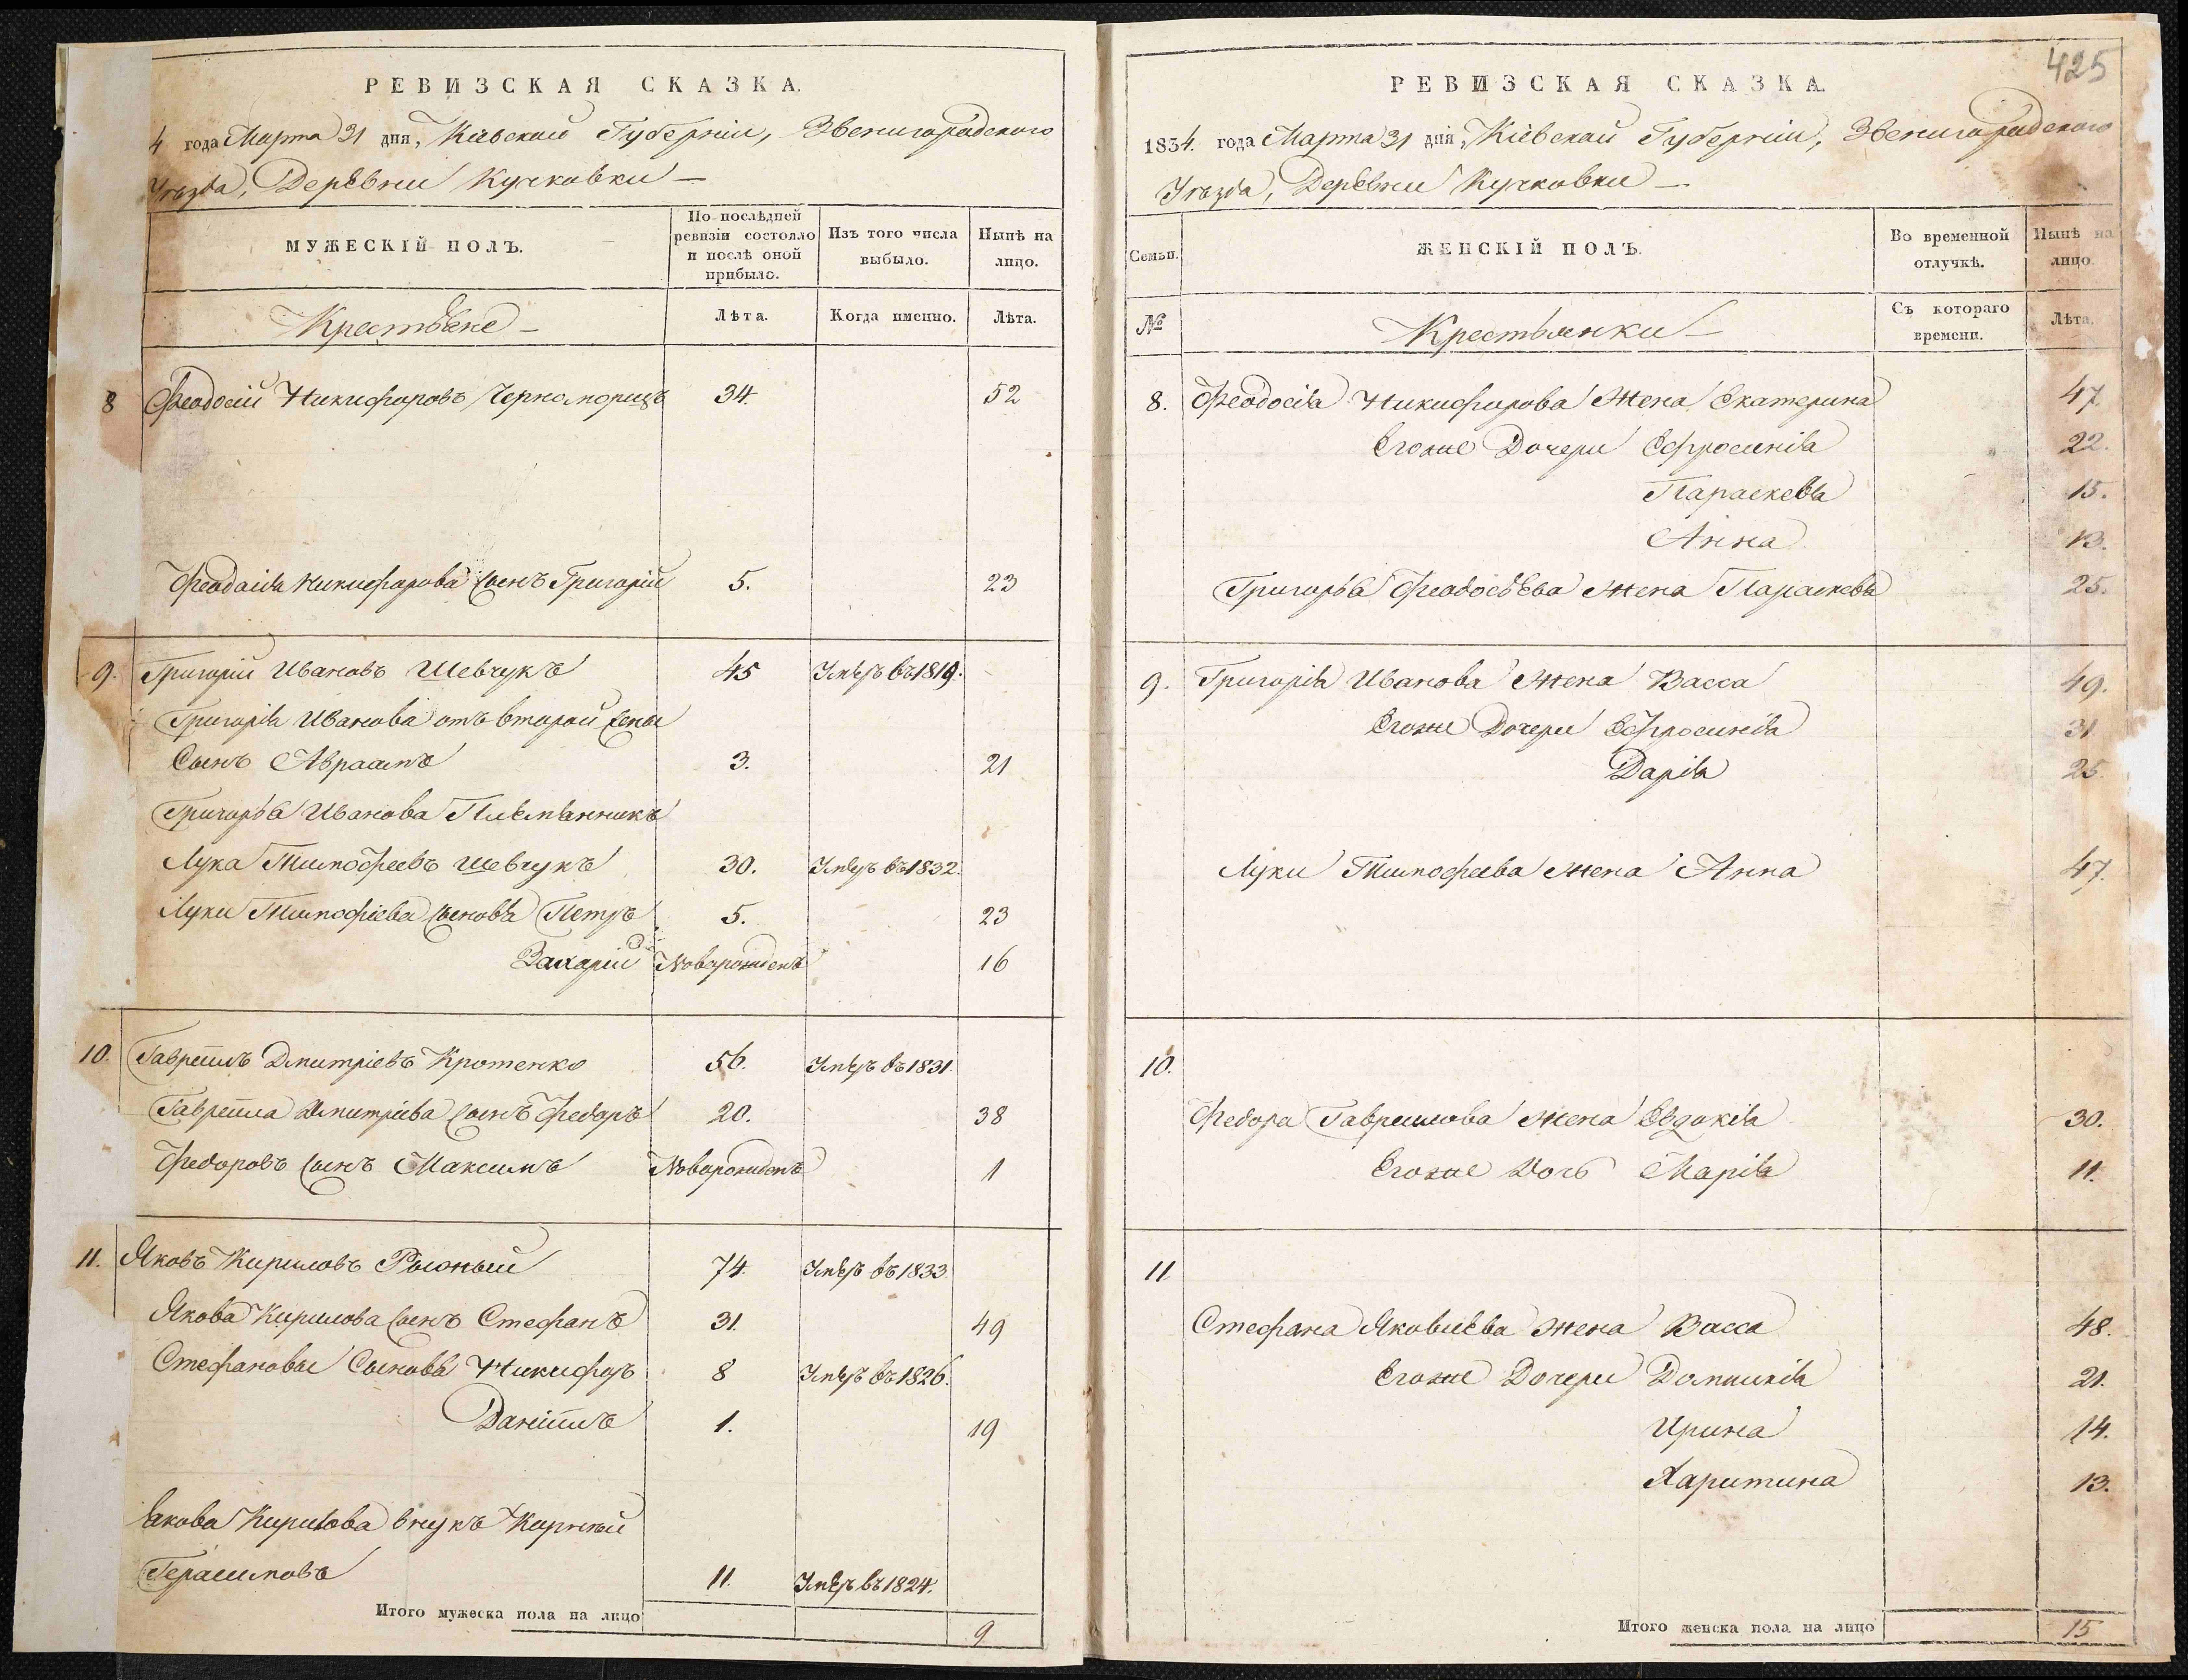 РЕВИЗСКАЯ СКАЗКА.
4 года Марта 31 дня, Кіевской Губерніи, Звенигородского
Уѣзда, Деревни Кучковки —
МУЖЕСКІЙ ПОЛЪ.
По послѣдней ревизіи состояло и послѣ оной прибыло.
Изъ того числа выбыло.
Нынѣ на лицо.
Крестьяне —
Лѣта.
Когда именно.
Лѣта.
8 Феодосій Никифоровъ Черноморецъ 34. 52
Феодосія Никифорова сынъ Григорій 5. 23
9. Григорій Ивановъ Шевчукъ 45 Умеръ въ 1819.
Григорія Иванова отъ второй жены
Сынъ Авраамъ 3. 21
Григорья Иванова Племянникъ
Лука Тимофеевъ Шевчукъ 30. Умеръ въ 1832.
Луки Тимофеева сыновья Петръ 5. 23
Захарій Новорожденъ 16
10. Гавреилъ Дмитріевъ Кротенко 56. Умеръ въ 1831.
Гавреила Дмитріева сынъ Федоръ 20. 38
Федоровъ сынъ Максимъ Новорожденъ 1
11. Яковъ Кириловъ Рыжный 74. Умеръ въ 1833
Якова Кирилова сынъ Стефанъ 31. 49
Стефановы Сыновья Никифоръ 8 Умеръ въ 1826.
Даніилъ 1. 19
Якова Кирилова внукъ Корнѣй
Герасимовъ 11. Умеръ въ 1824.
Итого мужеска пола на лицо 9
425
РЕВИЗСКАЯ СКАЗКА.
1834. года Марта 31 дня, Кіевской Губерніи, Звенигородского
Уѣзда, Деревни Кучковки —
Семьи.
ЖЕНСКІЙ ПОЛЪ.
Во временной отлучкѣ.
Нынѣ на лицо
№
Крестьянки —
Съ котораго времени.
Лѣта.
8. Феодосія Никифорова Жена Екатерина 47.
Егоже Дочери Ефросинія 22.
Параскева 15.
Анна 13.
Григорья Феодосьева жена Параскева 25.
9. Григорія Иванова Жена Васса 49.
Егоже Дочери Ефросинія 31
Дарія 25.
Луки Тимофеева жена Анна 47.
10.
Федора Гавреилова жена Евдокія 30.
Егоже Дочь Марія 11.
11
Стефана Яковлева жена Васса 48.
Егоже Дочери Домникія 21.
Ирина 14.
Харитина 13.
Итого женска пола на лицо 15